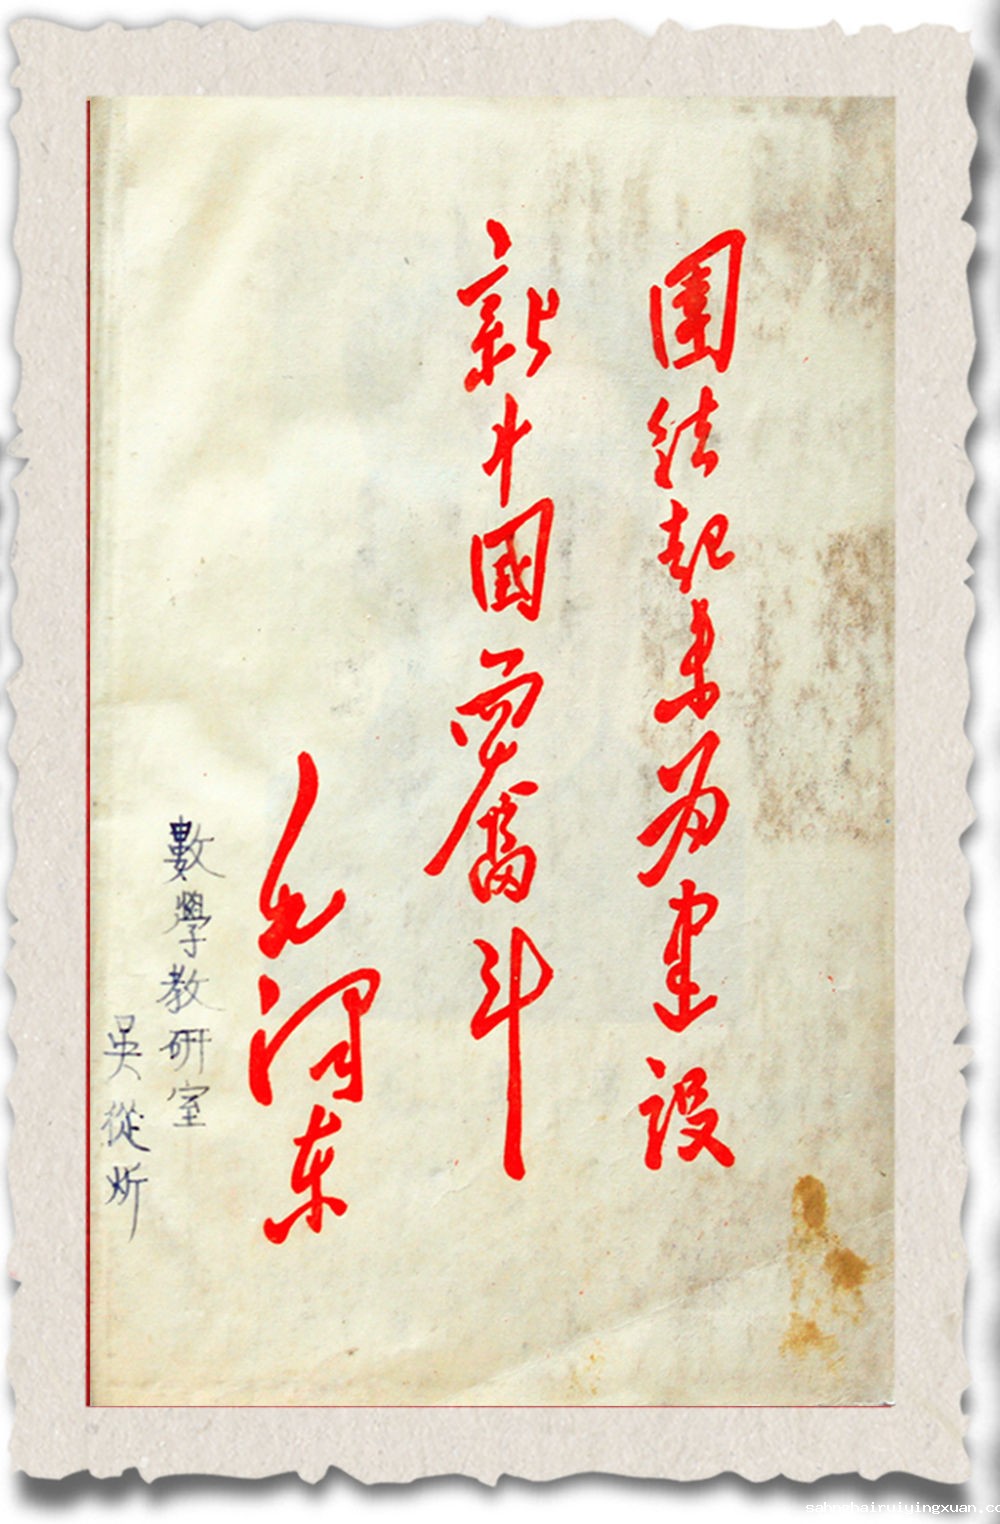 团结起来为建设
新中國而奮斗
毛泽东
數學教研室
吳從炘